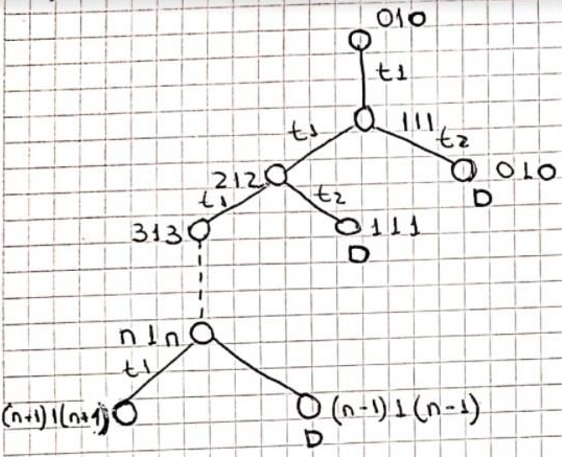 010
t1
111
t1
t2
212
010
D
t1
t2
313
111
D
n1n
t1
(n+1)1(n+1)
(n-1)1(n-1)
D